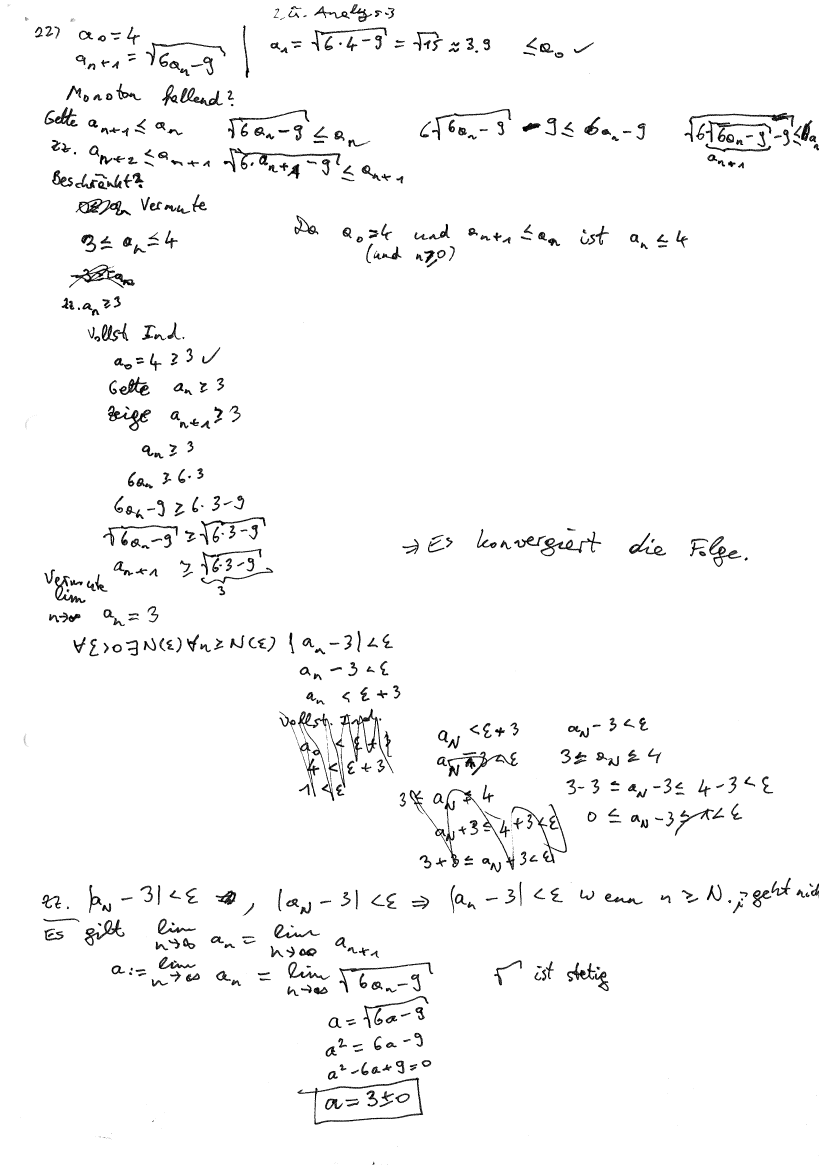 2. Ü. Analysis
227) a₀ = 4
aₙ₊₁ = √(6aₙ-9)
a₁ = √(6·4-9) = √15 ≈ 3.9 ≤ a₀ ✓
Monoton fallend?
Gelte aₙ₊₁ ≤ aₙ √(6aₙ-9) ≤ aₙ 6√(6aₙ-9) - 9 ≤ 6aₙ - 9
zz. aₙ₊₂ ≤ aₙ₊₁ √(6·aₙ₊₁-9) ≤ aₙ₊₁
aₙ₊₁
Beschränkt?
Vermute
3 ≤ aₙ ≤ 4
Da a₀=4 und aₙ₊₁ ≤ aₙ ist aₙ ≤ 4
(und n≥0)
zz. aₙ ≥ 3
Vollst Ind.
a₀ = 4 ≥ 3 ✓
Gelte aₙ ≥ 3
zeige aₙ₊₁ ≥ 3
aₙ ≥ 3
6aₙ ≥ 6·3
6aₙ-9 ≥ 6·3-9
√(6aₙ-9) ≥ √(6·3-9)
aₙ₊₁ ≥ √(6·3-9)
3
⇒ Es konvergiert die Folge.
Vermute
lim
n→∞ aₙ = 3
∀ε>0 ∃N(ε) ∀n≥N(ε) |aₙ-3| < ε
aₙ - 3 < ε
aₙ < ε + 3
Vollst. Ind.
a₀ < ε + 3
4 < ε + 3
1 < ε
a_N < ε+3
3 ≤ a_N ≤ 4
a_N+3 ≤ 4+3 < ε
3+3 ≤ a_N+3 < ε
a_N - 3 < ε
3 ≤ a_N ≤ 4
3-3 ≤ a_N-3 ≤ 4-3 < ε
0 ≤ a_N-3 ≤ 1 < ε
zz. |a_N - 3| < ε , |a_N - 3| < ε ⇒ |aₙ - 3| < ε wenn n ≥ N. geht
Es gilt lim n→∞ aₙ = lim n→∞ aₙ₊₁
a := lim n→∞ aₙ = lim n→∞ √(6aₙ-9) √ ist stetig
a = √(6a-9)
a² = 6a-9
a²-6a+9=0
a = 3±0